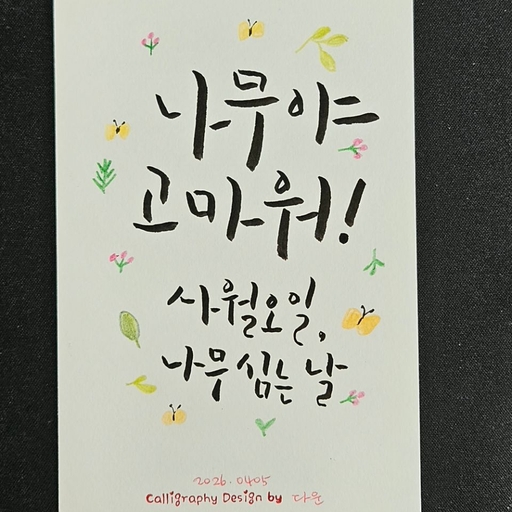 나무야
고마워!
사월오일,
나무 심는 날
2026.0405
Calligraphy Design by 다운